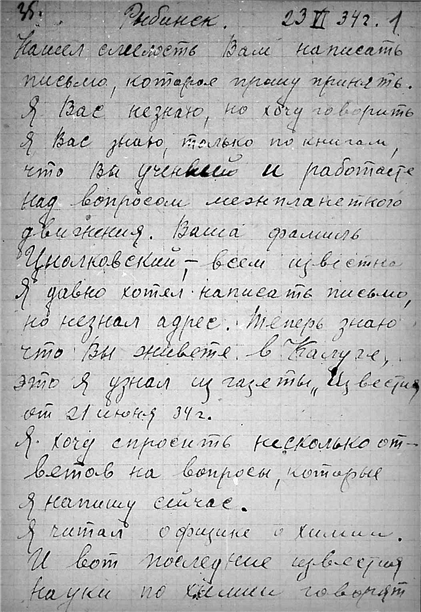 Рыбинск. 23 VI 34г. 1
Нашел смелость Вам написать
письмо, которое прошу принять.
Я Вас незнаю, но хочу говорить
Я Вас знаю, только по книгам,
что Вы ученый и работаете
над вопросом межпланетного
движения. Ваша фамиль
Циолковский, – всем известна
Я давно хотел написать письмо,
но незнал адрес. Теперь знаю
что Вы живете в Калуге,
это я узнал из газеты „Известия
от 21 июня 34г.
Я хочу спросить несколько от-
ветов на вопросы, которые
я напишу сейчас.
Я читал о физике о химии.
И вот последние известия
науки по химии говорят